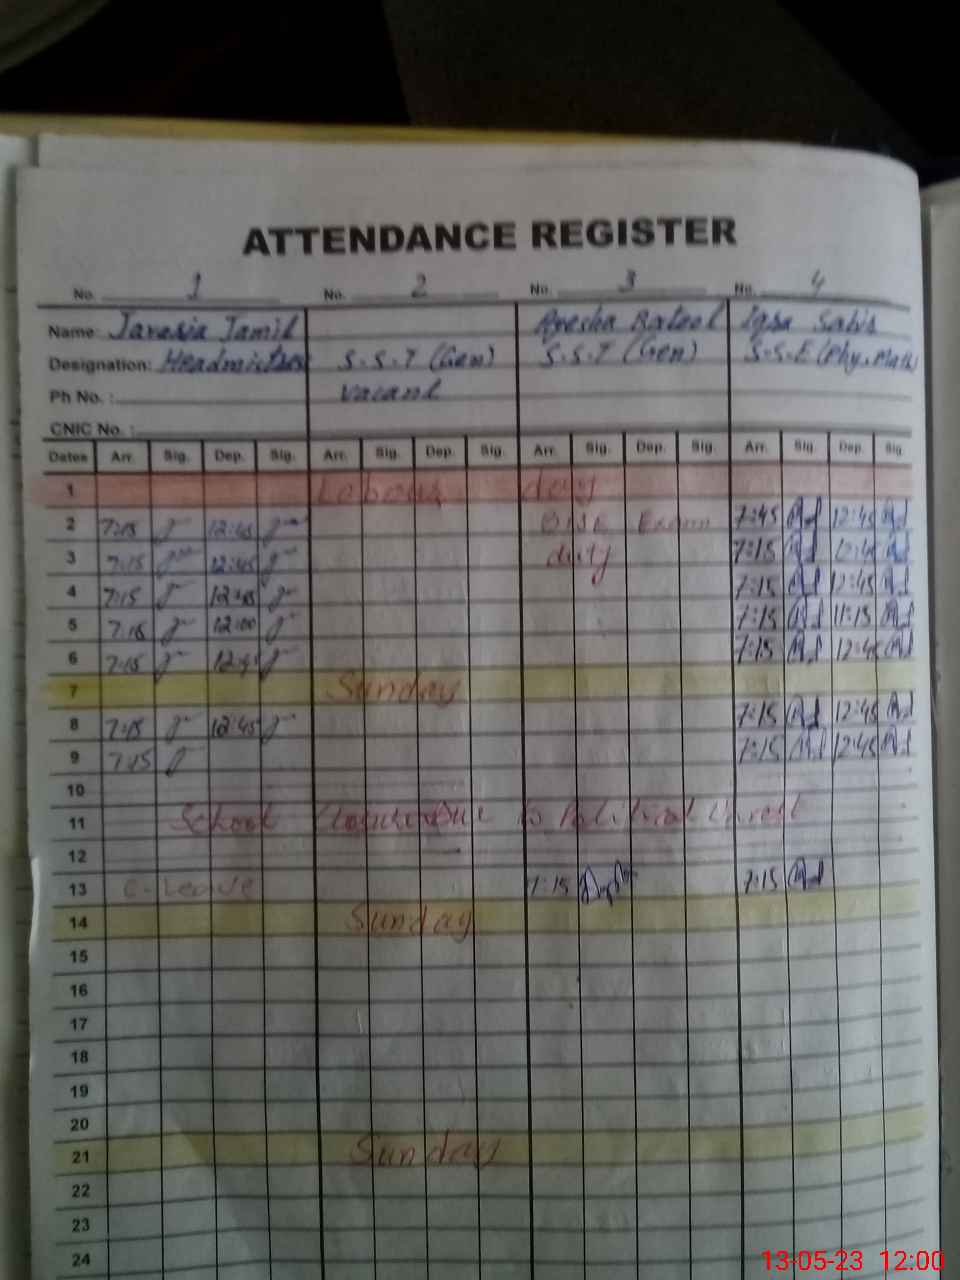 ATTENDANCE REGISTER
No. 1 No. 2 No. 3 No. 4
Name: Jamil Ayesha Batool Iqsa Sabir
Designation: Headmistress S.S.T (Gen) S.S.T (Gen) S.S.E (Phy. Math)
Ph No. : Vacant
CNIC No. :
Dates Arr. Sig. Dep. Sig. Arr. Sig. Dep. Sig. Arr. Sig. Dep. Sig. Arr. Sig. Dep. Sig.
1 Labour day
2 7:15 12:45 Exam 7:45 12:45
3 7:15 12:45 duty 7:15 12:45
4 7:15 12:45 7:15 12:45
5 7:15 12:00 7:15 11:15
6 7:15 7:15 12:45
7 Sunday
8 7:15 12:45 7:15 12:45
9 7:15 7:15 12:45
10
11 School Due to Political Unrest
12
13 C-Leave 7:15 7:15
14 Sunday
15
16
17
18
19
20
21 Sunday
22
23
24
13-05-23 12:00